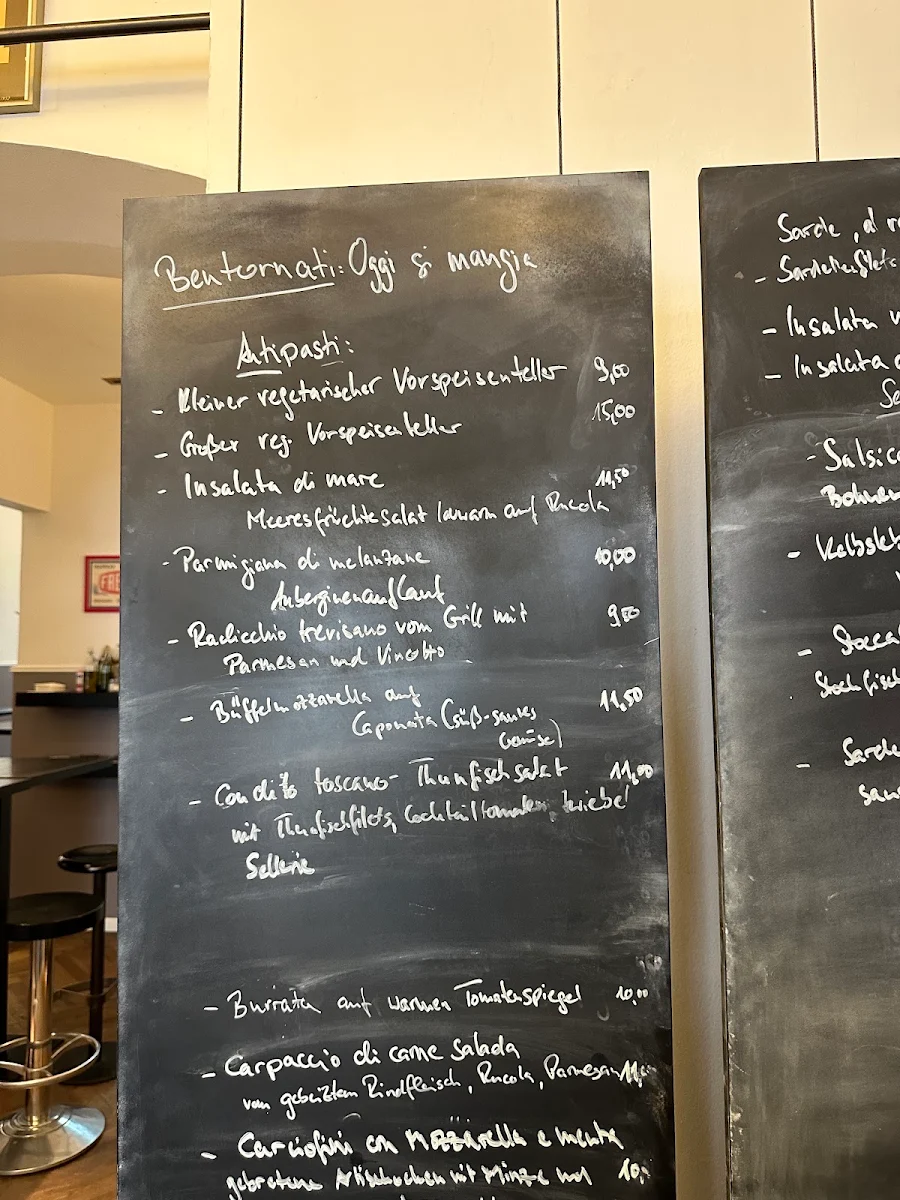 Bentornati: Oggi si mangia
Antipasti:
- Kleiner vegetarischer Vorspeisenteller 9,00
- Großer veg. Vorspeisenteller 15,00
- Insalata di mare 11,50
Meeresfrüchtesalat lauwarm auf Rucola
- Parmigiana di melanzane 10,00
Auberginenauflauf
- Radicchio trevisano vom Grill mit 9,00
Parmesan und Vincotto
- Büffelmozzarella auf 11,50
Caponata (süß-saures
Gemüse)
- Condito toscano - Thunfischsalat 11,00
mit Thunfischfilets, Cocktailtomaten, Zwiebel
Sellerie
- Burrata auf warmen Tomatenspiegel 10,00
- Carpaccio di carne salada
von gebeiztem Rindfleisch, Rucola, Parmesan
- Carciofini con mozzarella e menta
gebratene Artischocken mit Minze und 10,
Sarde, al
- Sardellenfilets
- Insalata
- Insalata
- Salsicc
Bohnen
- Kalbsleb
- Stocca
Stockfisch
- Sarde
FRE